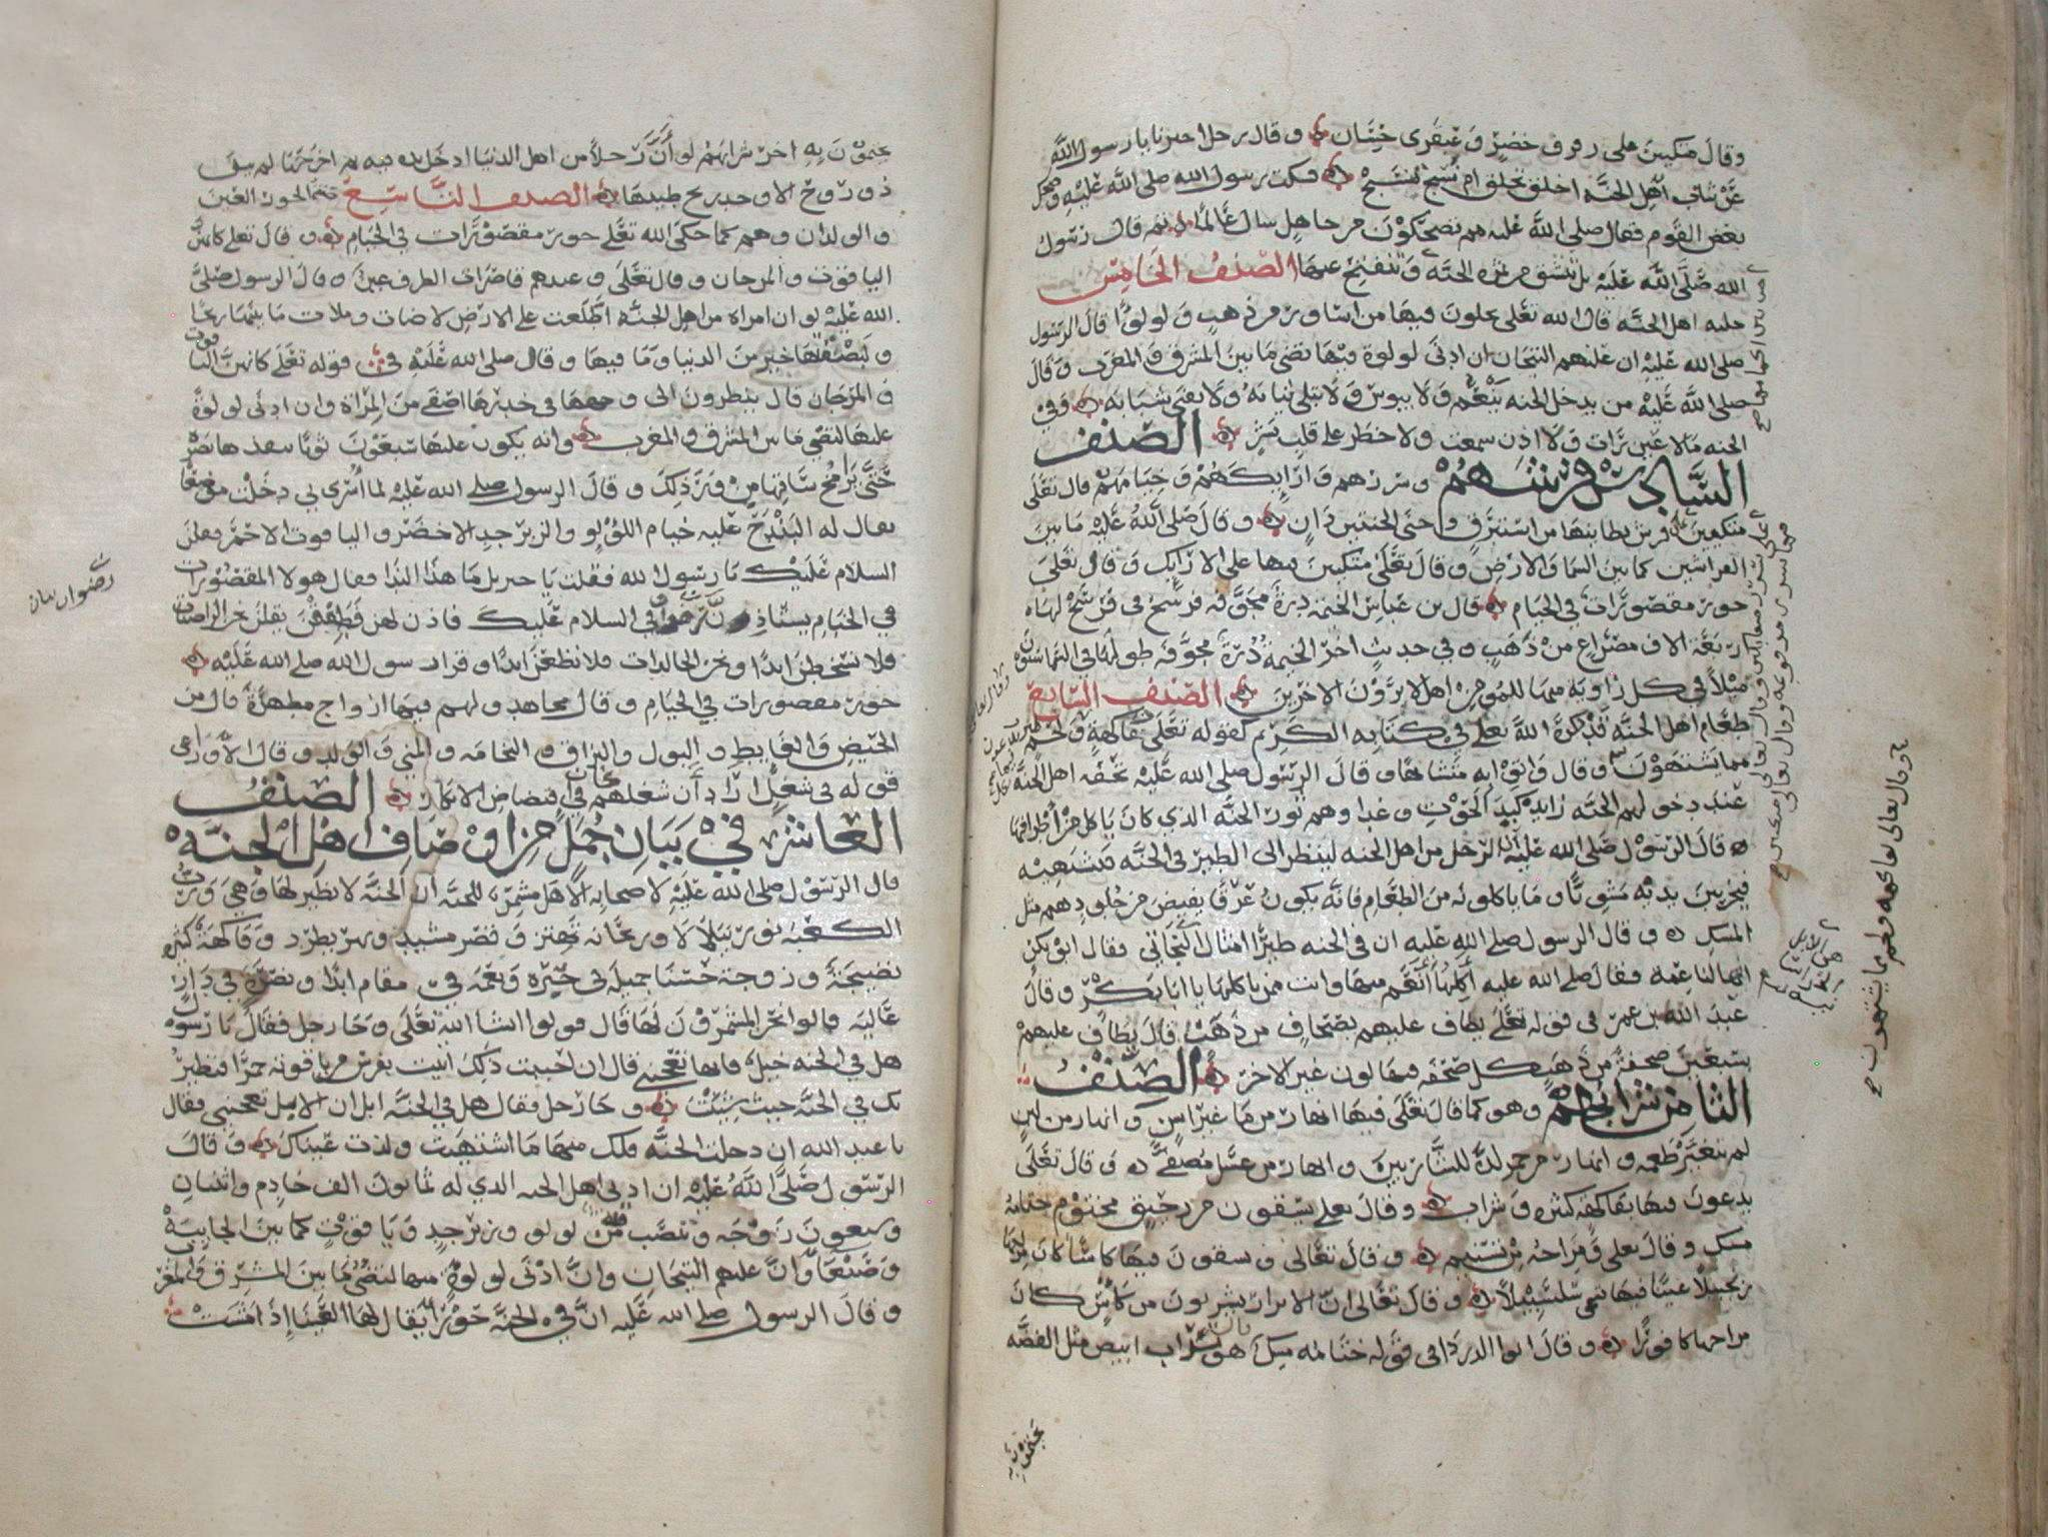 وقال متكيين على رفرف خضر وعبقري حسان وقال رجل اخبرنا يا رسول الله
عن ثياب اهل الجنه اخلق تخلق ام نسج تنسج فسكت رسول الله صلى الله عليه وضحك
بعض القوم فقال صلى الله عليه مم تضحكون من جاهل سال عالما ثم قال رسول
الله صلى الله عليه بل تنشق من ثمره الجنه الصنف الخامس
حليه اهل الجنه قال الله تعلى يحلون فيها من اساور من ذهب ولولوا قال الرسول
صلى الله عليه ان عليهم التيجان ان ادنى لولوة فيها تضي ما بين المشرق والمغرب وقال
صلى الله عليه من يدخل الجنه ينعم ولا يبوس ولا تبلى ثيابه ولا يفنى شبابه وفي
الجنه مالا عين رات ولا اذن سمعت ولا خطر على قلب بشر الصنف
السادس فرشهم وسررهم وارايكهم وخيامهم قال تعلى
متكيين على فرش بطاينها من استبرق وجنى الجنتين دان وقال صلى الله عليه ما بين
الفراشين كما بين السما والارض وقال تعلى متكيين فيها على الارايك وقال تعلى
حور مقصورات في الخيام قال بن عباس الخيمه درة مجوفه فرسخ في فرسخ لها
اربعة الاف مصراع من ذهب وفي حديث اخر الخيمة درة مجوفه طولها في السما ستون
ميلا في كل زاوية منها للمومن اهل لا يرون الاخرين الصنف السابع
طعام اهل الجنه قد ذكره الله تعلى في كتابه الكريم كقوله تعلى فاكهة ولحم
مما يشتهون وقال واتوا به متشابها وقال الرسول صلى الله عليه تحفه اهل الجنه
عند دخولهم الجنه زايدة كبد الحوت وغداوهم ثور الجنه الذي كان ياكل من اطرافها
وقال الرسول صلى الله عليه ان الرجل من اهل الجنه لينظر الى الطير في الجنه فيشتهيه
فيخر بين يديه مشويا وما ياكلونه من الطعام فانه يكون عرقا يفيض من جلودهم مثل
المسك وقال الرسول صلى الله عليه ان في الجنه طيرا امثال البخاتي فقال ابو بكر
انها لناعمه فقال صلى الله عليه اكلها انعم منها وانت ممن ياكلها يا ابا بكر وقال
عبد الله بن عمر في قوله تعلى يطاف عليهم بصحاف من ذهب قال يطاف عليهم
بسبعين صحفة من ذهب كل صحفه فيها لون غير الاخر الصنف
الثامن شرابهم وهو كما قال تعلى فيها انهار من ما غير اسن وانهار من لبن
لم يتغير طعمه وانهار من خمر لذة للشاربين وانهار من عسل مصفى وقال تعلى
يدعون فيها بفاكهه كثيره وشراب وقال تعلى يسقون من رحيق مختوم ختامه
مسك وقال تعلى ومزاجه من تسنيم وقال تعالى ويسقون فيها كاسا كان مزاجها
زنجبيلا عينا فيها تسمى سلسبيلا وقال تعالى ان الابرار يشربون من كاس كان
مزاجها كافورا وقال ابو الدردا في قوله ختامه مسك هو شراب ابيض مثل الفضه
يختمون به
وقال تعالى بفاكهه ولحم مما يشتهون
يختمون به اخر شرابهم لو ان رجلا من اهل الدنيا ادخل يده فيه ثم اخرجها لم يبق
ذو روح الا وجد ريح طيبها الصنف التاسع الحور العين
والولدان وهم كما حكى الله تعلى حور مقصورات في الخيام وقال تعلى كانهن
الياقوت والمرجان وقال تعلى وعندهم قاصرات الطرف عين وقال الرسول صلى
الله عليه لو ان امراة من اهل الجنه اطلعت على الارض لاضات وملات ما بينهما ريحا
ولنصفها خير من الدنيا وما فيها وقال صلى الله عليه في قوله تعلى كانهن الياقوت
والمرجان قال ينظرون الى وجهها في خدرها اصفى من المراة وان ادنى لولوة
عليها لتضي ما بين المشرق والمغرب وانه يكون عليها سبعون ثوبا ينفذها بصره
حتى يرى مخ ساقها من ورا ذلك وقال الرسول صلى الله عليه لما اسري بي دخلت موضعا
يقال له البيدخ عليه خيام اللؤلو والزبرجد الاخضر والياقوت الاحمر فقلن
السلام عليك يا رسول الله فقلت يا جبريل ما هذا الندا فقال هولا المقصورات
في الخيام يستاذن ربهن في السلام عليك فاذن لهن فطفقن يقلن نحن الراضيات
فلا نسخط ابدا ونحن الخالدات فلا نظعن ابدا وقرا رسول الله صلى الله عليه
حور مقصورات في الخيام وقال مجاهد ولهم فيها ازواج مطهرة قال من
الحيض والغايط والبول والبزاق والنخامه والمني والولد وقال الاوزاعي
قوله في شغل اراد ان شغلهم في افتضاض الابكار الصنف
العاشر في بيان جمل من اوصاف اهل الجنه
قال الرسول صلى الله عليه لاصحابه الا هل مشمر للجنه ان الجنه لا نظير لها وهي ورب
الكعبه نور يتلالا وريحانه تهتز وقصر مشيد ونهر يطرد وفاكهة كثيره
نضيجة وزوجة حسنا جميلة في حبره ونعمه في مقام ابدا ونضره في دار
عاليه قالوا نحن المشمرون لها قال قولوا انشا الله تعلى وجا رجل فقال يا رسول
هل في الجنه خيل فانها تعجبني قال ان احببت ذلك اتيت بفرس من ياقوته حمرا فتطير
بك في الجنه حيث شيت وجا رجل فقال هل في الجنه ابل ان الابل تعجبني فقال
يا عبد الله ان دخلت الجنه فلك فيها ما اشتهيت ولذت عيناك وقال
الرسول صلى الله عليه ان ادنى اهل الجنه الذي له ثمانون الف خادم واثنان
وسبعون زوجه وتنصب له قبه من لولو وزبرجد وياقوت كما بين الجابيه
وصنعا وان عليهم التيجان وان ادنى لولوة منها لتضي ما بين المشرق والمغرب
وقال الرسول صلى الله عليه ان في الجنه حورا يقال لها العينا اذا مشت
رضوان بيان